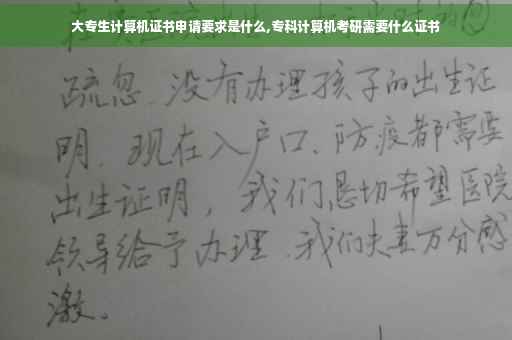 大专生计算机证书申请要求是什么,专科计算机考研需要什么证书
疏忽、没有办理孩子的出生证
明、现在入户口、防疫都需要
出生证明，我们恳切希望医院
领导给予办理、我们夫妻万分感
激。